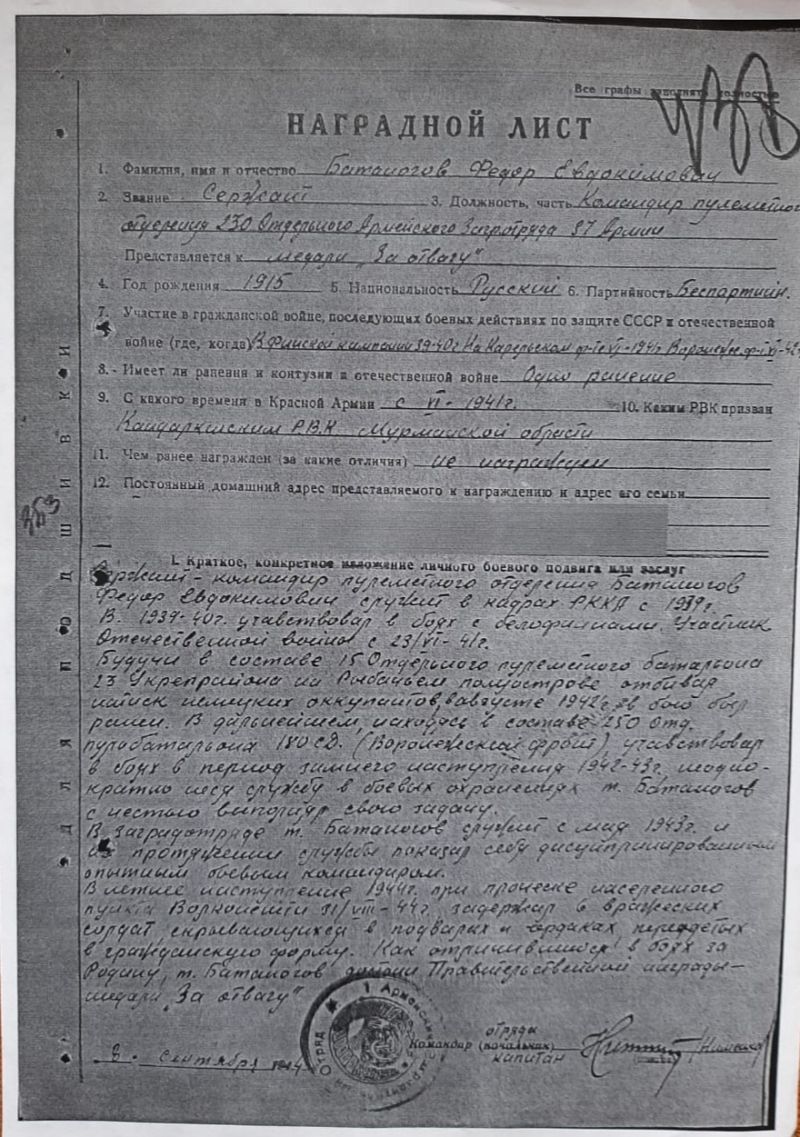 Все графы заполнять полностью
НАГРАДНОЙ ЛИСТ
1. Фамилия, имя и отчество Баталогов Федор Евдокимович
2. Звание Сержант 3. Должность, часть Командир пулеметного
отделения 230 Отдельного Армейского Загротряда 37 Армии
Представляется к медали „За отвагу"
4. Год рождения 1915 5. Национальность Русский 6. Партийность Беспартийн.
7. Участие в гражданской войне, последующих боевых действиях по защите СССР и отечественной
войне (где, когда) В Финской кампании 39-40г. На Карельском ф-те VI-1941г. Воронеж
8. Имеет ли ранения и контузии в отечественной войне Одно ранение
9. С какого времени в Красной Армии с VI-1941г. 10. Каким РВК призван
Кандалкшским Р.В.К Мурманской области
11. Чем ранее награжден (за какие отличия) не награжден
12. Постоянный домашний адрес представляемого к награждению и адрес его семьи
I. Краткое, конкретное изложение личного боевого подвига или заслуг
Сержант - командир пулеметного отделения Баталогов
Федор Евдокимович служит в кадрах РККА с 1939г.
В 1939-40г. учавствовал в боях с белофиннами. Участник
Отечественной войны с 23/VI-41г.
Будучи в составе 15 Отдельного пулеметного батальона
23 Укрепрайона на Рыбачьем полуострове отбивал
натиск немецких оккупантов, в августе 1942г. в бою был
ранен. В дальнейшем, находясь в составе 250 Отд.
пульбатальона 180 СД. (Воронежский фронт) учавствовал
в боях в период зимнего наступления 1942-43г, неодно-
кратно неся службу в боевых охранениях т. Баталогов
с честью выполнял свою задачу.
В Заградотряде т. Баталогов служит с мая 1943г. и
на протяжении службы показал себя дисциплинированным
опытным боевым командиром.
В летнее наступление 1944г. при прочесе населенного
пункта 31/VIII-44г. задержал 6 вражеских
солдат скрывающихся в подвалах и чердаках переодетых
в гражданскую форму. Как отличившийся в боях за
Родину, т. Баталогов достоин Правительственной награды -
медали „За отвагу"
отряда
Командир (начальник)
капитан
8 сентября 1944
Отряд Армейский
ДЛЯ ПОДШИВКИ